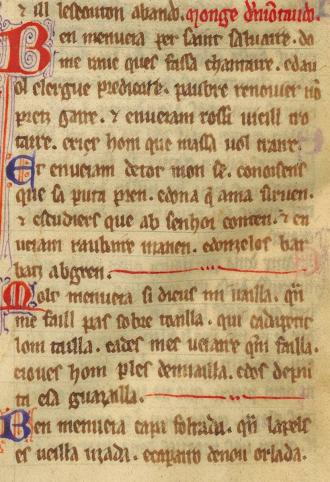 ⁊ ill lesdouton abando. Monge d'mõtaudo.
Ben menueia per saint saluaire. do
me rauc ques fassa chantaire. edau
ol clergue predicaire. paubre renouier nō
pretz gaire. ⁊ enueiam rossi uieill tro
taire. erics hom que massa uol traire.
Et enueiam detor mon se. conoissens
que sa puta pren. edona q̃ ama siruen.
⁊ escudiers que ab senhor conten. ⁊ en
ueiam raubaire manen. edonzelos bar
batz abgren.
Molt menueia si dieus mi uailla. qñ
me faill pas sobre toailla. qui cadapetit
lom tailla. cades mes ueiaire qm̃ failla.
eioues hom ples denuailla. edos depui
ta esa guazailla.
Ben menueia capa folrada. qñ lapels
es ueilla uzada. ecapairo denou orlada.